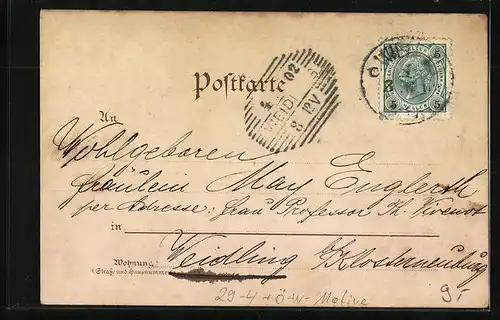 Postkarte
02
WEID
8 12V
5 5
An
Wohlgeboren
Fräulein May Englerth
per Adresse: Frau Professor Th. Vivenot
in
Wohnung: Weidling b/Klosterneuburg
(Straße und Hausnummer)
29-4 + Ö-W- Motive
9,-